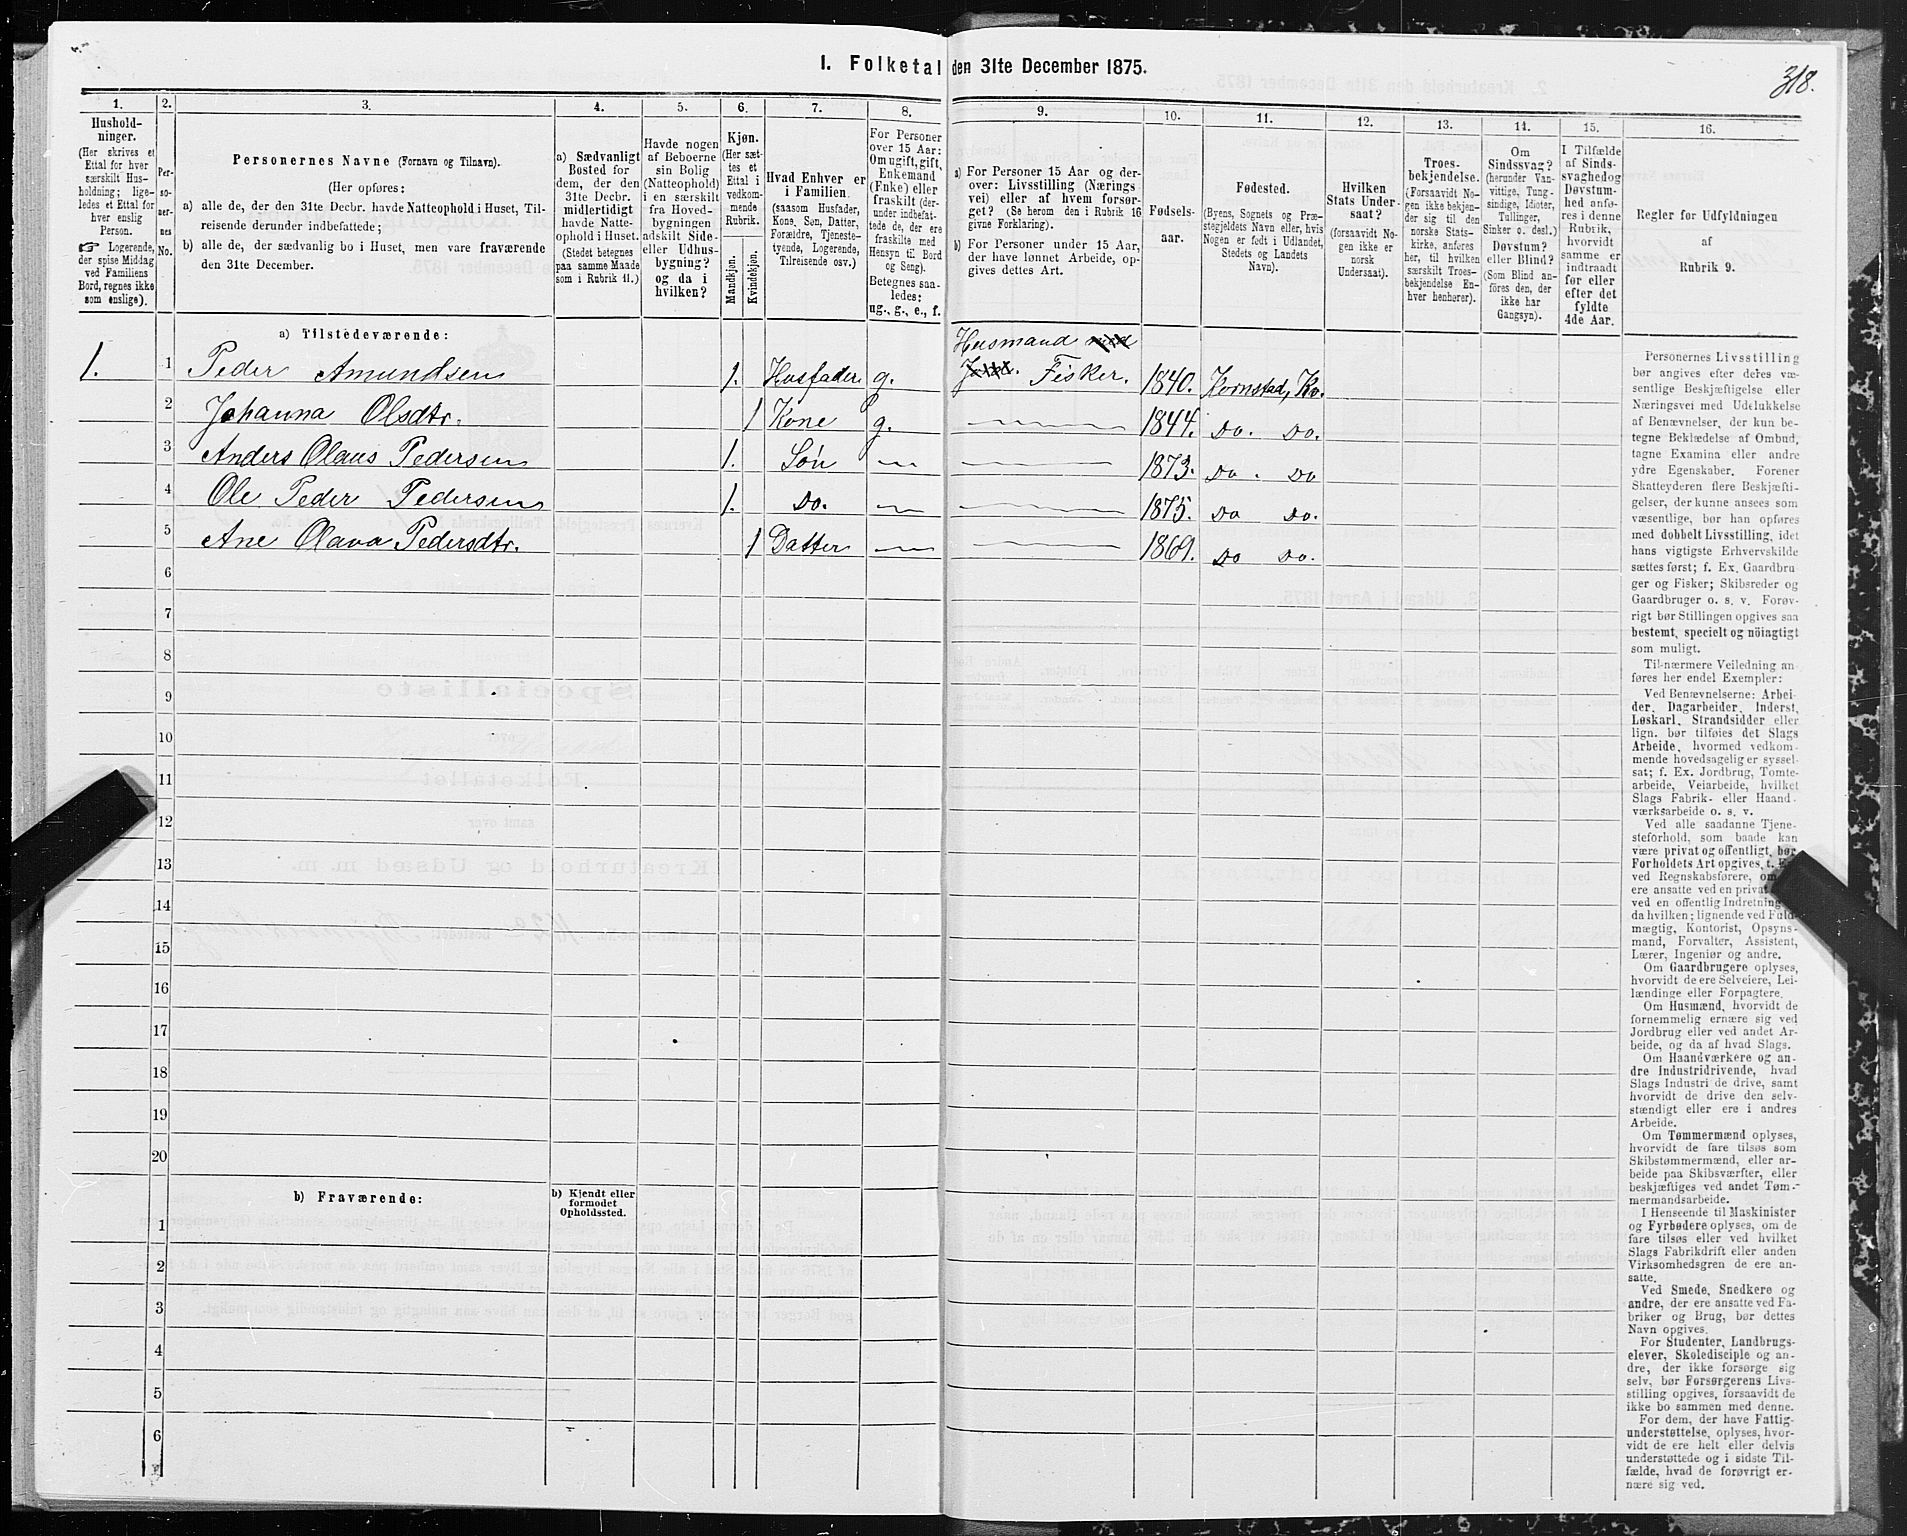 1. Folketal den 31te December 1875.
318.
1.
2.
3.
4.
5.
6.
7.
8.
9.
10.
11.
12.
13.
14.
15.
16.
Hushold-
ninger.
(Her skrives et
Ettal for hver
særskilt Hus-
holdning; lige-
ledes et Ettal for
hver enslig
Person.
☞ Logerende,
der spise Middag
ved Familiens
Bord, regnes ikke
som enslige).
Per-
so-
ner-
nes
No.
Personernes Navne (Fornavn og Tilnavn).
(Her opføres:
a) alle de, der den 31te Decbr. havde Natteophold i Huset, Til-
reisende derunder indbefattede;
b) alle de, der sædvanlig bo i Huset, men vare fraværende
den 31te December.
a) Sædvanligt
Bosted for
dem, der den
31te Decbr.
midlertidigt
havde Natte-
ophold i Huset.
(Stedet betegnes
paa samme Maade
som i Rubrik 11.)
Havde nogen
af Beboerne
sin Bolig
(Natteophold)
i en særskilt
fra Hoved-
bygningen
adskilt Side-
eller Udhus-
bygning?
og da i
hvilken?
Kjøn.
(Her sæt-
tes et
Ettal i
vedkom-
mende
Rubrik.
Mandkjøn.
Kvindekjøn.
Hvad Enhver er
i Familien.
(saasom Husfader,
Kone, Søn, Datter,
Forældre, Tjeneste-
tyende, Logerende,
Tilreisende osv.)
For Personer
over 15 Aar:
Om ugift, gift,
Enkemand
(Enke) eller
fraskilt (der-
under indbefat-
tede de, der ere
fraskilte med
Hensyn til Bord
og Seng).
Betegnes saa-
ledes:
ug., g., e., f.
a) For Personer 15 Aar og der-
over: Livsstilling (Nærings
vei) eller af hvem forsør-
get? (Se herom den i Rubrik 16
givne Forklaring).
b) For Personer under 15 Aar,
der have lønnet Arbeide, op-
gives dettes Art.
Fødsels-
aar.
Fødested.
(Byens, Sognets og Præ-
stegjeldets Navn eller, hvis
Nogen er født i Udlandet,
Stedets og Landets
Navn).
Hvilken
Stats Under-
saat?
(forsaavidt No-
gen ikke er
norsk
Undersaat).
Troes-
bekjendelse.
(Forsaavidt No-
gen ikke bekjen-
der sig til den
norske Stats-
kirke, anføres
her, til hvilken
særskilt Troes-
bekjendelse En-
hver henhører).
Om
Sindssvag?
(herunder Van-
vittige, Tung-
sindige, Idioter,
Tullinger,
Sinker o. desl.)
Døvstum?
eller Blind?
(Som Blind an-
føres den, der
ikke har
Gangsyn).
I Tilfælde
af Sinds-
svaghed og
Døvstum-
hed anfø-
res i denne
Rubrik,
hvorvidt
samme er
indtraadt
før eller
efter det
fyldte
4de Aar.
Regler før Udfyldningen
af
Rubrik 9.
a) Tilstedeværende:
1. 1 Peder Amundsen 1. Husfader g. Husmand med Fisker. 1840. Kornstad, Kv.
2 Johanna Olsdtr. 1 Kone g. 1844. Do. Do.
3 Anders Olaus Pedersen 1. Søn 1873. Do. Do
4 Ole Peder Pedersen 1. Do. 1875. Do Do.
5 Ane Olava Pedersdtr. 1 Datter 1869. Do Do.
6
7
8
9
10
11
12
13
14
15
16
17
18
19
20
b) Fraværende:
b) Kjendt eller
formodet
Opholdssted.
1
2
3
4
5
6
Personernes Livsstilling
bør angives efter deres væ-
sentlige Beskjæftigelse eller
Næringsvei med Udelukkelse
af Benævnelser, der kun be-
tegne Beklædelse af Ombud,
tagne Examina eller andre
ydre Egenskaber. Forener
Skatteyderen flere Beskjæfti-
gelser, der kunne ansees som
væsentlige, bør han opføres
med dobbelt Livsstilling, idet
hans vigtigste Erhvervskilde
sættes først; f. Ex. Gaardbru-
ger og Fisker; Skibsreder og
Gaardbruger o. s. v. Forøv-
rigt bør Stillingen opgives saa
bestemt, specielt og nöiagtigt
som muligt.
Til nærmere Veiledning an-
føres her endel Exempler:
Ved Benævnelserne: Arbei-
der, Dagarbeider, Inderst,
Løskarl, Strandsidder eller
lign. bør tilføies det Slags
Arbeide, hvormed vedkom-
mende hovedsagelig er syssel-
sat; f. Ex. Jordbrug, Tomte-
arbeide, Veiarbeide, hvilket
Slags Fabrik- eller Haand-
værksarbeide o. s. v.
Ved alle saadanne Tjene-
steforhold, som baade kan
være privat og offentligt, bør
Forholdets Art opgives, t. Ex.
ved Regnskabsførere, om
ere ansatte ved en privat
ved en offentlig Indretning
da hvilken; lignende ved Fuld-
mægtig, Kontorist, Opsyns-
mand, Forvalter, Assistent,
Lærer, Ingeniør og andre.
Om Gaardbrugere oplyses,
hvorvidt de ere Selveiere, Lei-
lændinge eller Forpagtere.
Om Husmænd, hvorvidt de
fornemmelig ernære sig ved
Jordbrug eller ved andet Ar-
beide, og da af hvad Slags.
Om Haandværkere og an-
dre Industridrivende, hvad
Slags Industri de drive, samt
hvorvidt de drive den selv-
stændigt eller ere i andres
Arbeide.
Om Tømmermænd oplyses,
hvorvidt de fare tilsøs som
Skibstømmermænd, eller ar-
beide paa Skibsværfter, eller
beskjæftiges ved andet Tøm-
mermandsarbeide.
I Henseende til Maskinister
og Fyrbødere oplyses, om de
fare tilsøs eller ved hvilket
Slags Fabrikdrift eller anden
Virksomhedsgren de ere an-
satte.
Ved Smede, Snedkere og
andre, der ere ansatte ved Fa-
briker og Brug, bør dettes
Navn opgives.
For Studenter, Landbrugs-
elever, Skoledisciple og an-
dre, der ikke forsørge sig
selv, bør Forsørgerens Livs-
stilling opgives, forsaavidt de
ikke bo sammen med denne.
For dem, der have Fattig-
understøttelse, oplyses, hvor-
vidt de ere helt eller delvis
understøttede og i sidste Til-
fælde, hvad de forøvrigt er-
nære sig ved.